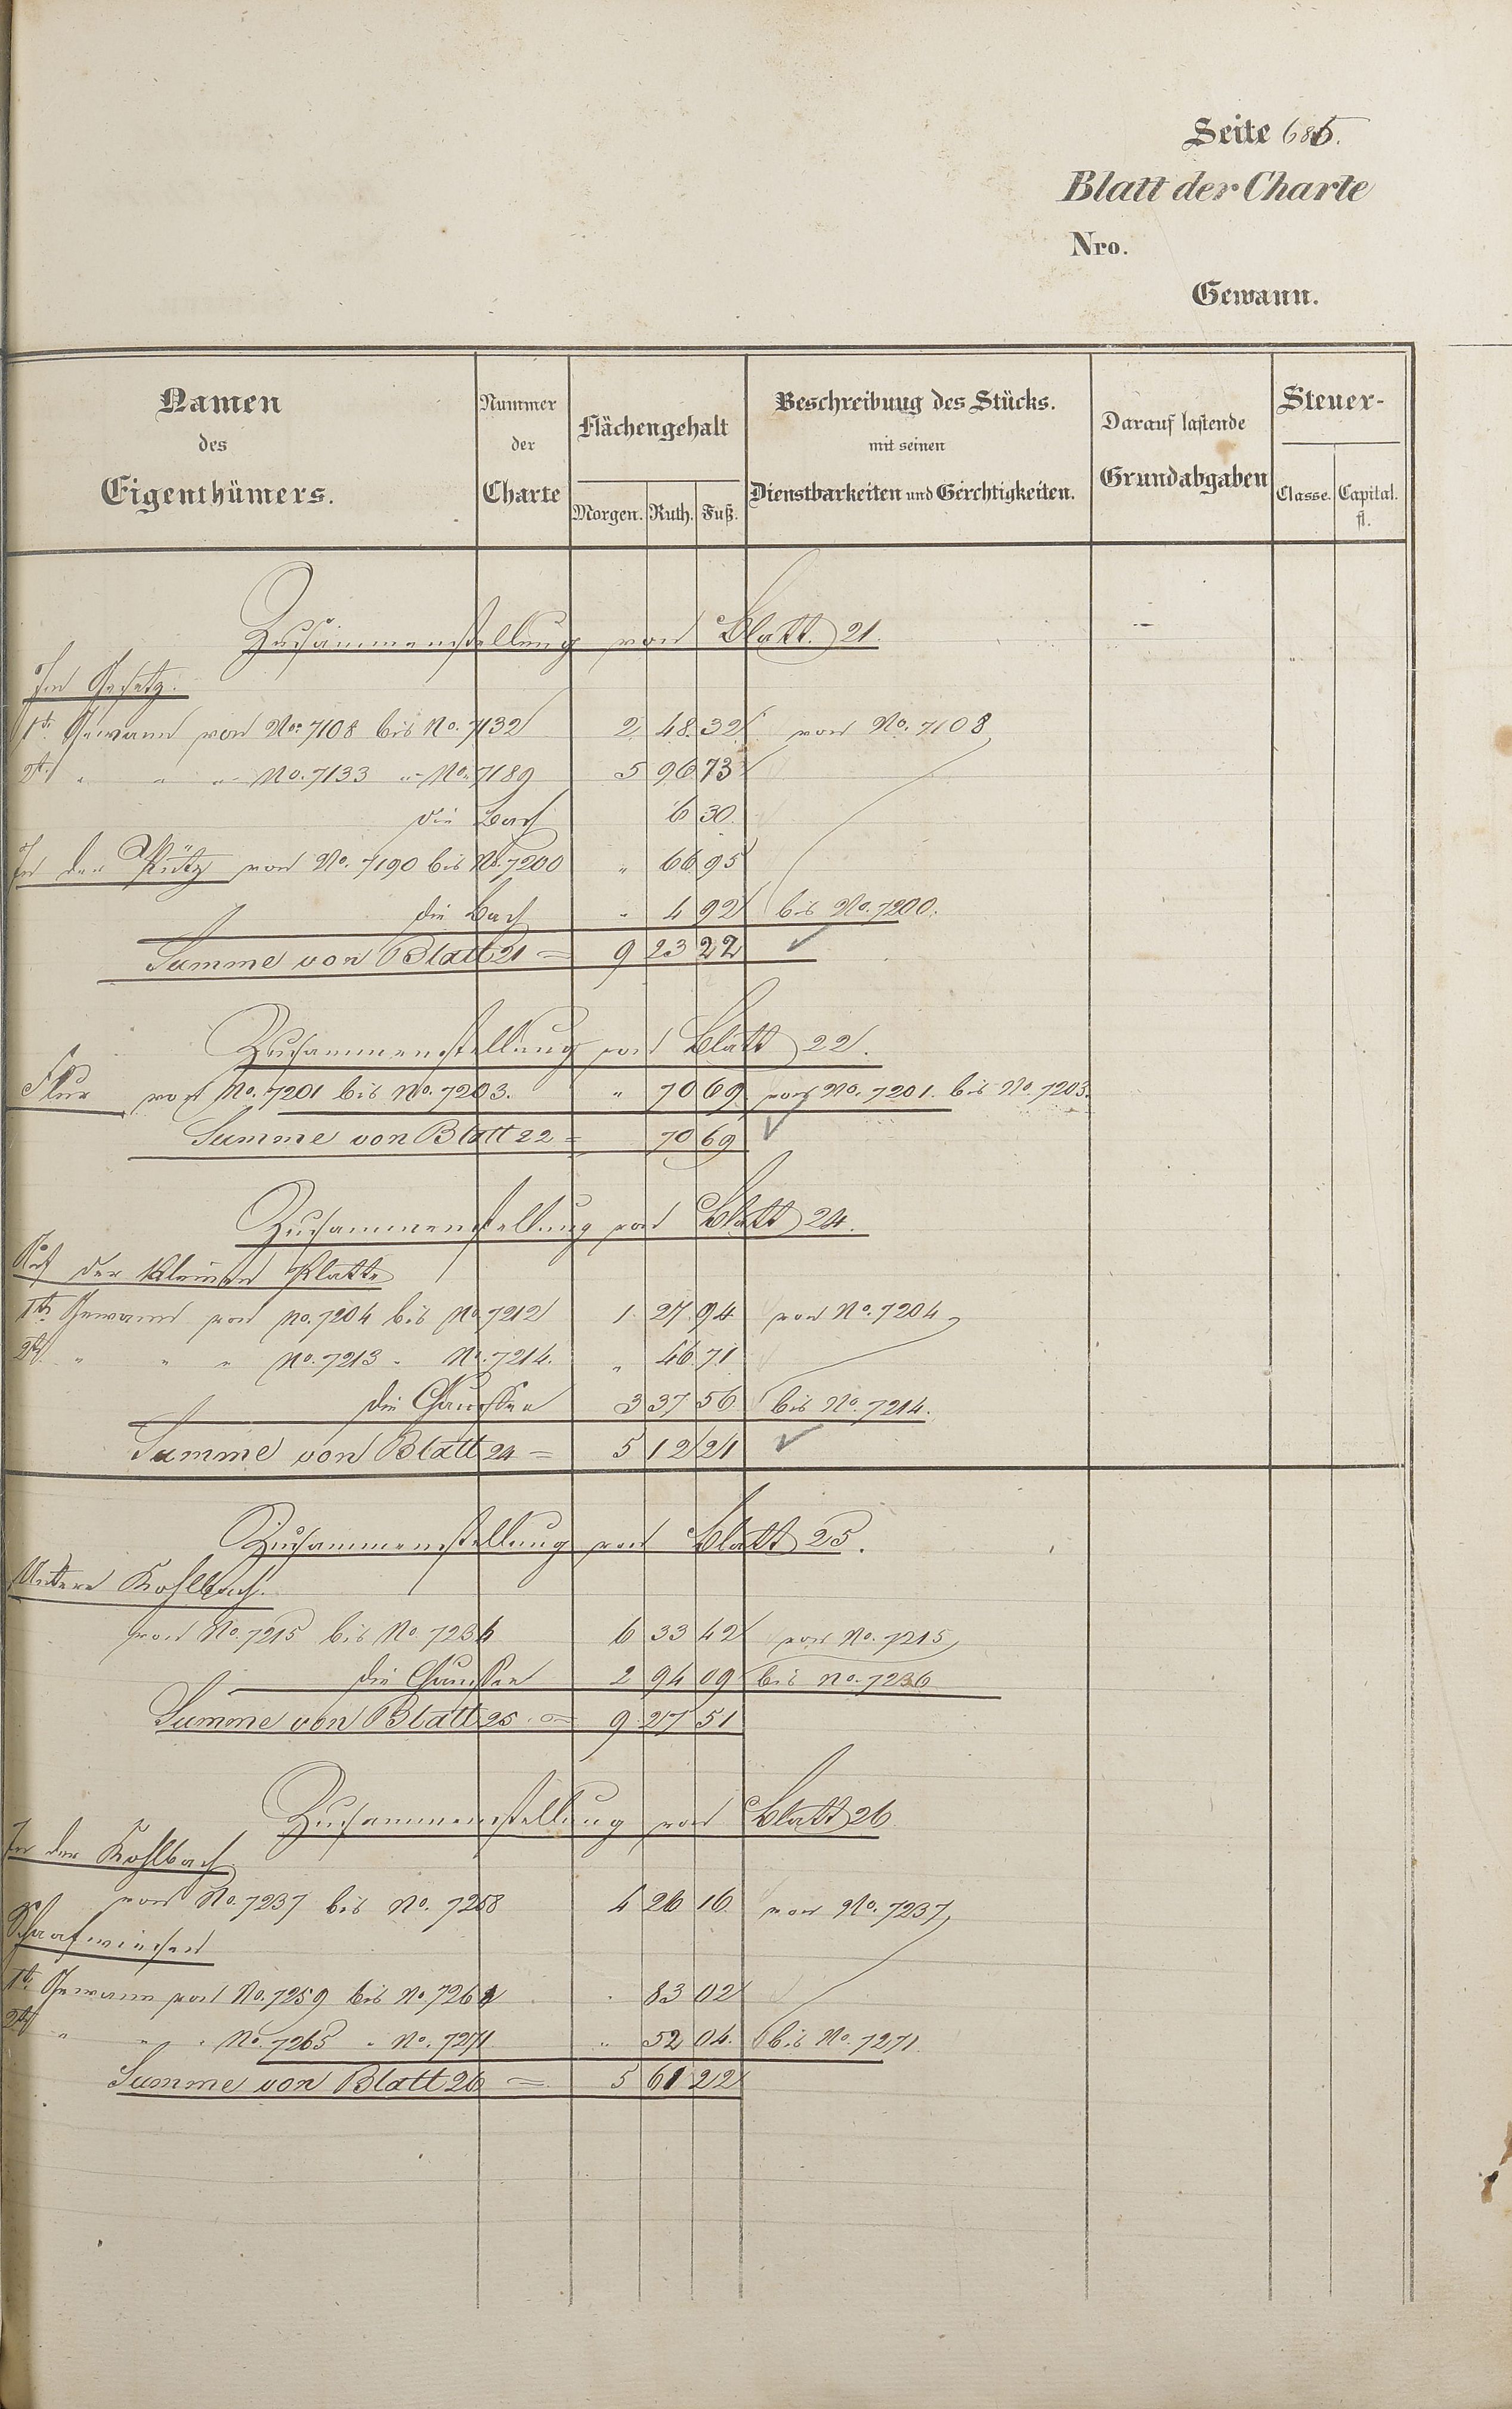 Seite 685.
Blatt der Charte
Nro.
Gewann.
Namen des Eigenthümers.
Nummer der Charte
Flächengehalt
Morgen. Ruth. Fuß.
Beschreibung des Stücks. mit seinen Dienstbarkeiten und Gerechtigkeiten.
Darauf lastende Grundabgaben
Steuer-
Classe. Capital. fl.
Zusammenstellung von Blatt. 21.
Im Gesetz.
1te Gewann von No. 7108 bis No. 7132 2 48 32 von No. 7108
2te " " " No. 7133 " No. 7189 5 96 73
die Bach 6 30
In der Pütz von No. 7190 bis No. 7200 " 66 95
die Bach " 4 92 bis No. 7200.
Summe von Blatt 21 = 9 23 22
Zusammenstellung von Blatt 22.
Flur von No. 7201 bis No. 7203. " 70 69 von No. 7201. bis No. 7203.
Summe von Blatt 22 = 70 69
Zusammenstellung von Blatt 24.
Auf der kleinen Platte
1te Gewann von No. 7204 bis No. 7212 1 27 94 von No. 7204
2te " " " No. 7213 " No. 7214. " 46 71
die Chaussee 3 37 56 bis No. 7214.
Summe von Blatt 24 = 5 12 21
Zusammenstellung von Blatt 25.
Untere Kohlbach.
von No. 7215 bis No. 7236 6 33 42 von No. 7215
die Chaussee 2 94 09 bis No. 7236
Summe von Blatt 25 = 9 27 51
Zusammenstellung von Blatt 26
In der Kohlbach
von No. 7237 bis No. 7258 4 26 16 von No. 7237
Schaafwiesen
1te Gewann von No. 7259 bis No. 7264 " 83 02
2te " " " No. 7265 " No. 7271 " 52 04. bis No. 7271.
Summe von Blatt 26 = 5 61 22